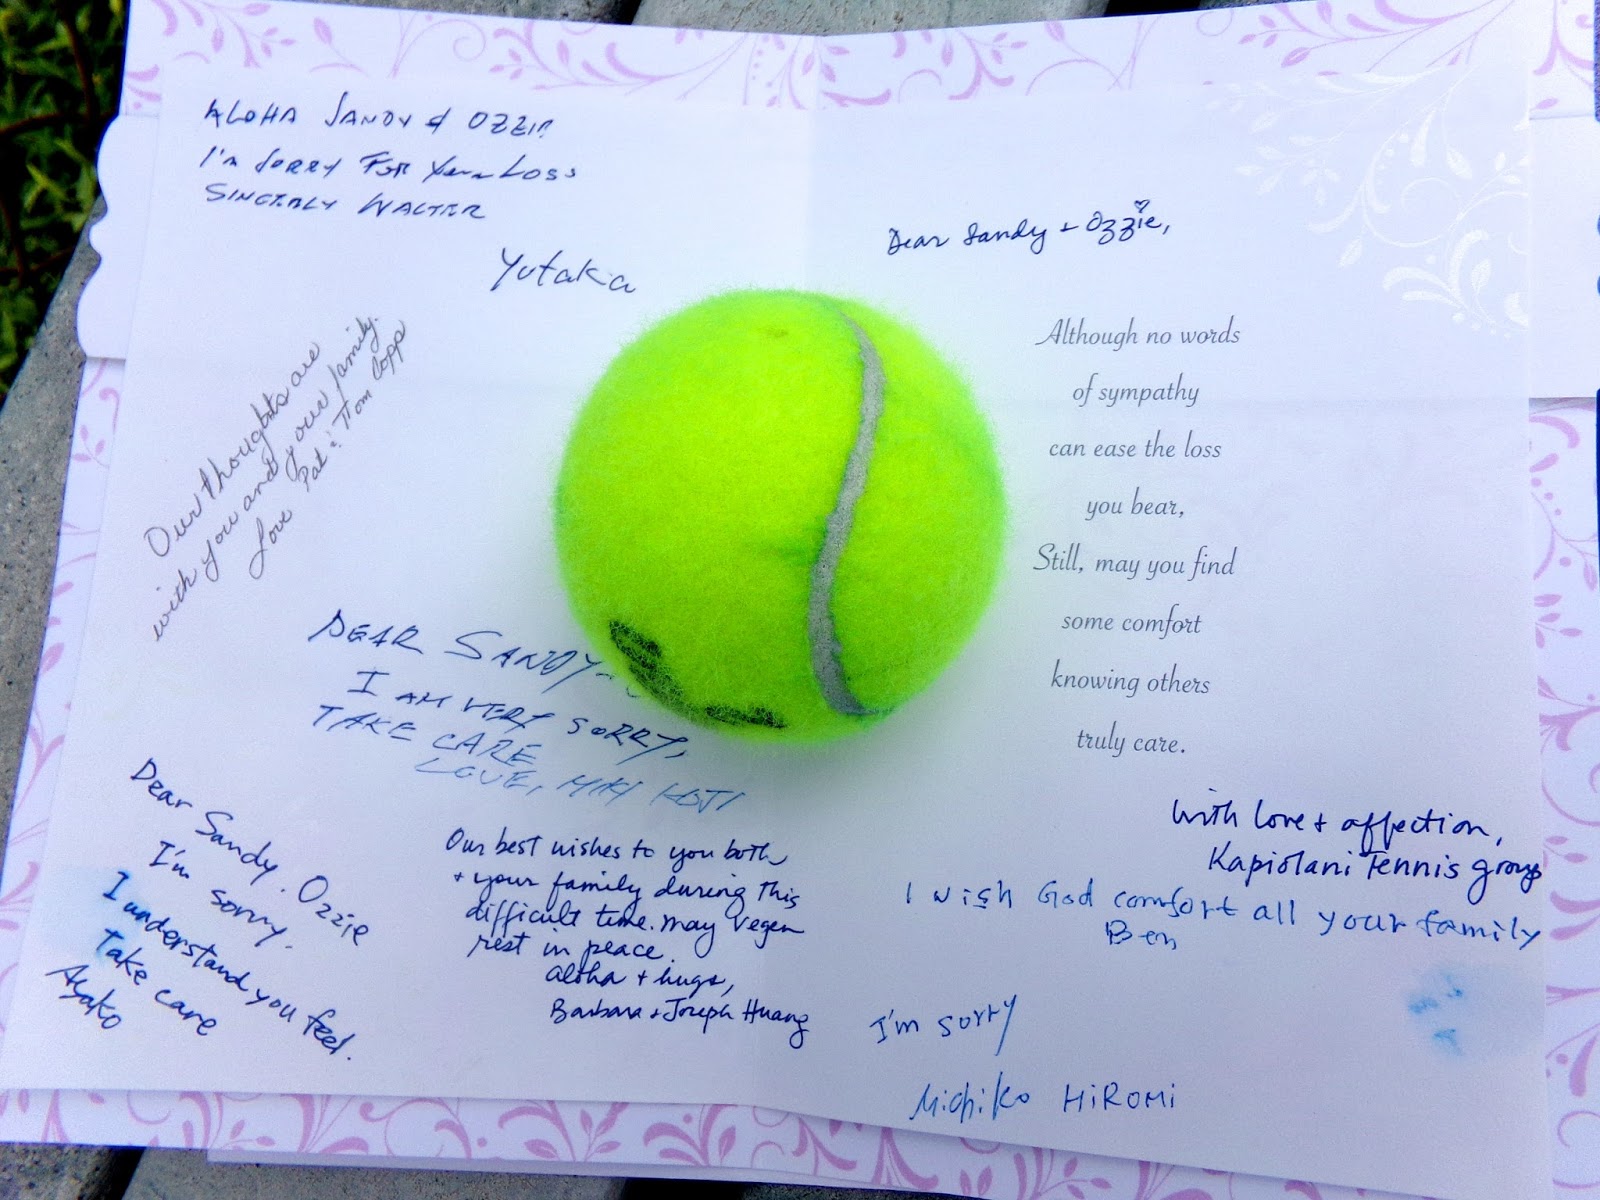 ALOHA SANDY & OZZIE
I'm SORRY FOR Your LOSS
SINCERLY WALTER
Yutaka
Our thoughts are
with you and your family.
Love Pat & Tom Copp
DEAR SANDY
I AM VERY SORRY,
TAKE CARE
LOVE, MIKI KOJI
Dear Sandy. Ozzie
I'm sorry.
I understand you feel.
Take care
Ayako
Our best wishes to you both
+ your family during this
difficult time. May Vegen
rest in peace.
aloha + hugs,
Barbara + Joseph Huang
Dear Sandy + Ozzie,
Although no words
of sympathy
can ease the loss
you bear,
Still, may you find
some comfort
knowing others
truly care.
With love + affection,
Kapiolani Tennis group
I wish God comfort all your family
Ben
I'm sorry
Michiko HiROMi